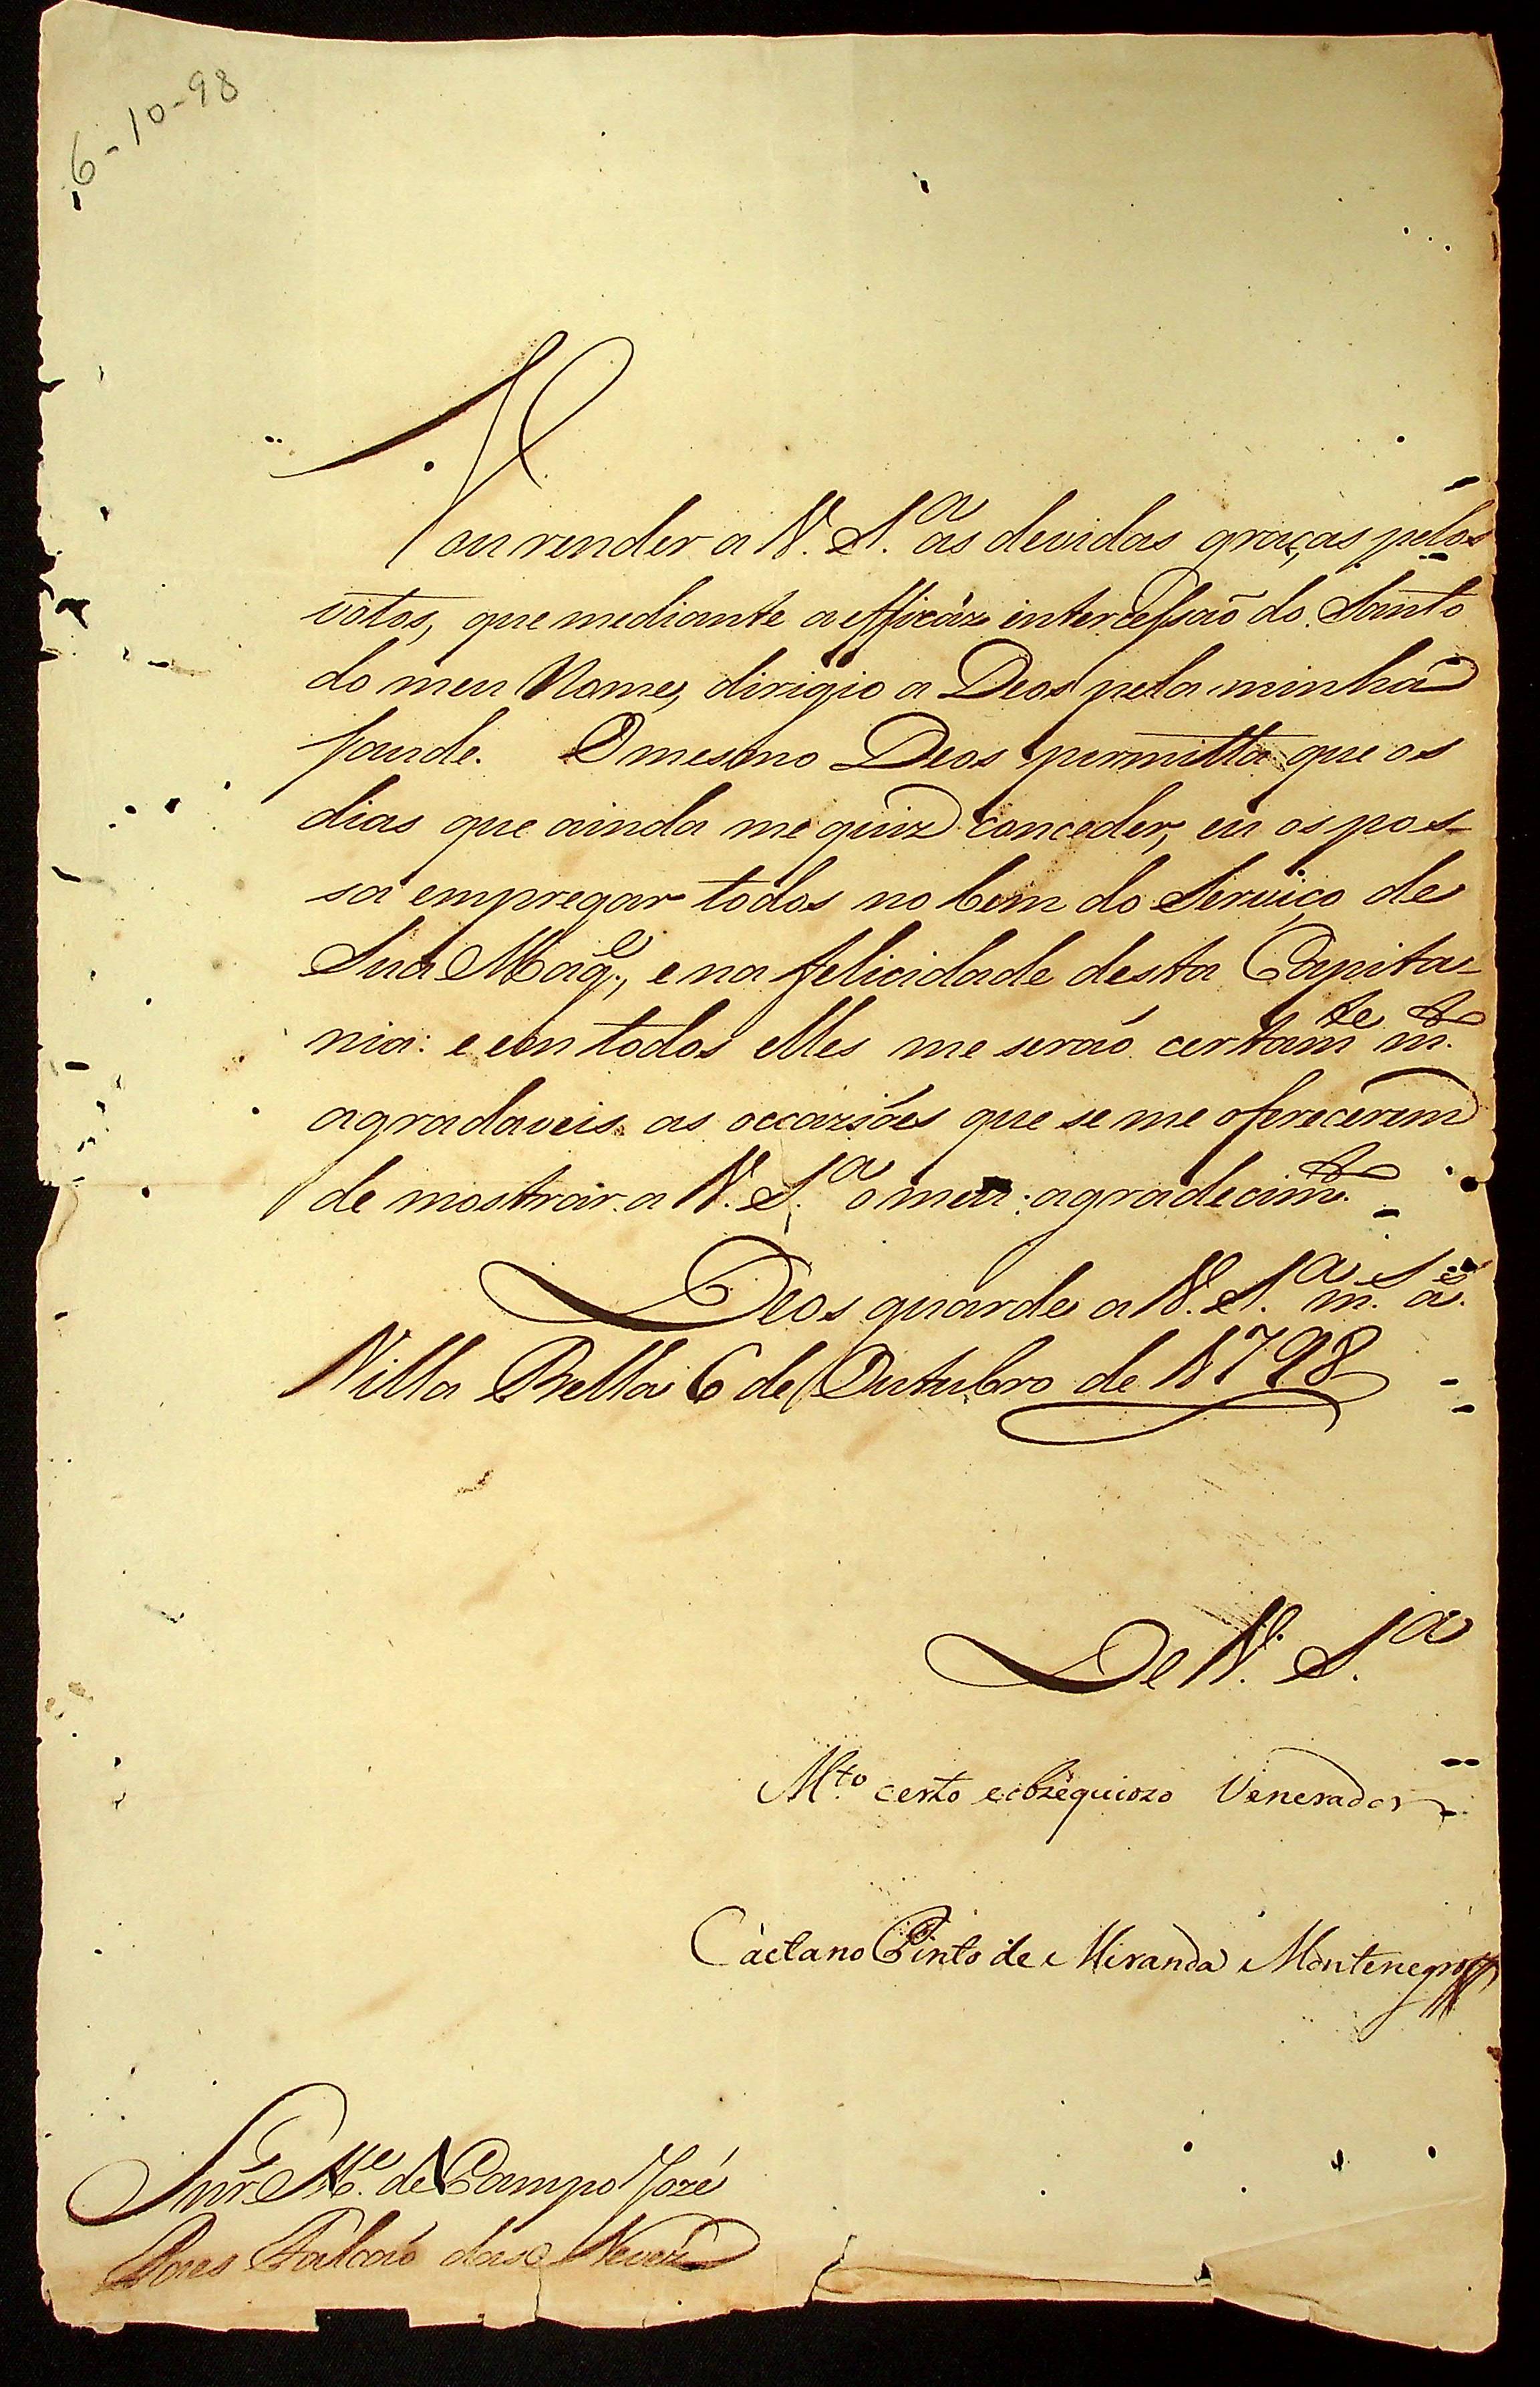 6-10-98
Vou render a V. S.ª as devidas graças pelos
votos, que mediante a efficáz intercessaõ do Santo
do meu Nome, dirigio a Deos pela minha
saude. O mesmo Deos permitta que os
dias que ainda me quiz conceder, eu os pos-
sa empregar todos no bem do Serviço de
Sua Mag.e, e na felicidade desta Capita-
nia: e em todos elles me seraõ certam.te m.to
agradaveis as occaziões que se me oferecerem
de mostrar a V. S.ª o meu agradecim.to
Deos guarde a V. S.ª m.s a.s
Villa Bella 6 de Outubro de 1798
De V. S.ª
M.to certo e obzequiozo Venerador
Caetano Pinto de Miranda Montenegro
Snr. M.e de Campo Jozé
Paes Falcaõ das Neves